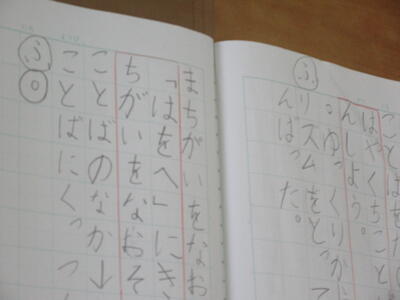 ことばを
はやくちこと
んしよう。
ゆっくりが
ふ
リズムをとって
んばった。
まちがいをなお
「はをへ」にき
ちがいをなおそ
ことばのなか→
ことばにくっつ
ふ